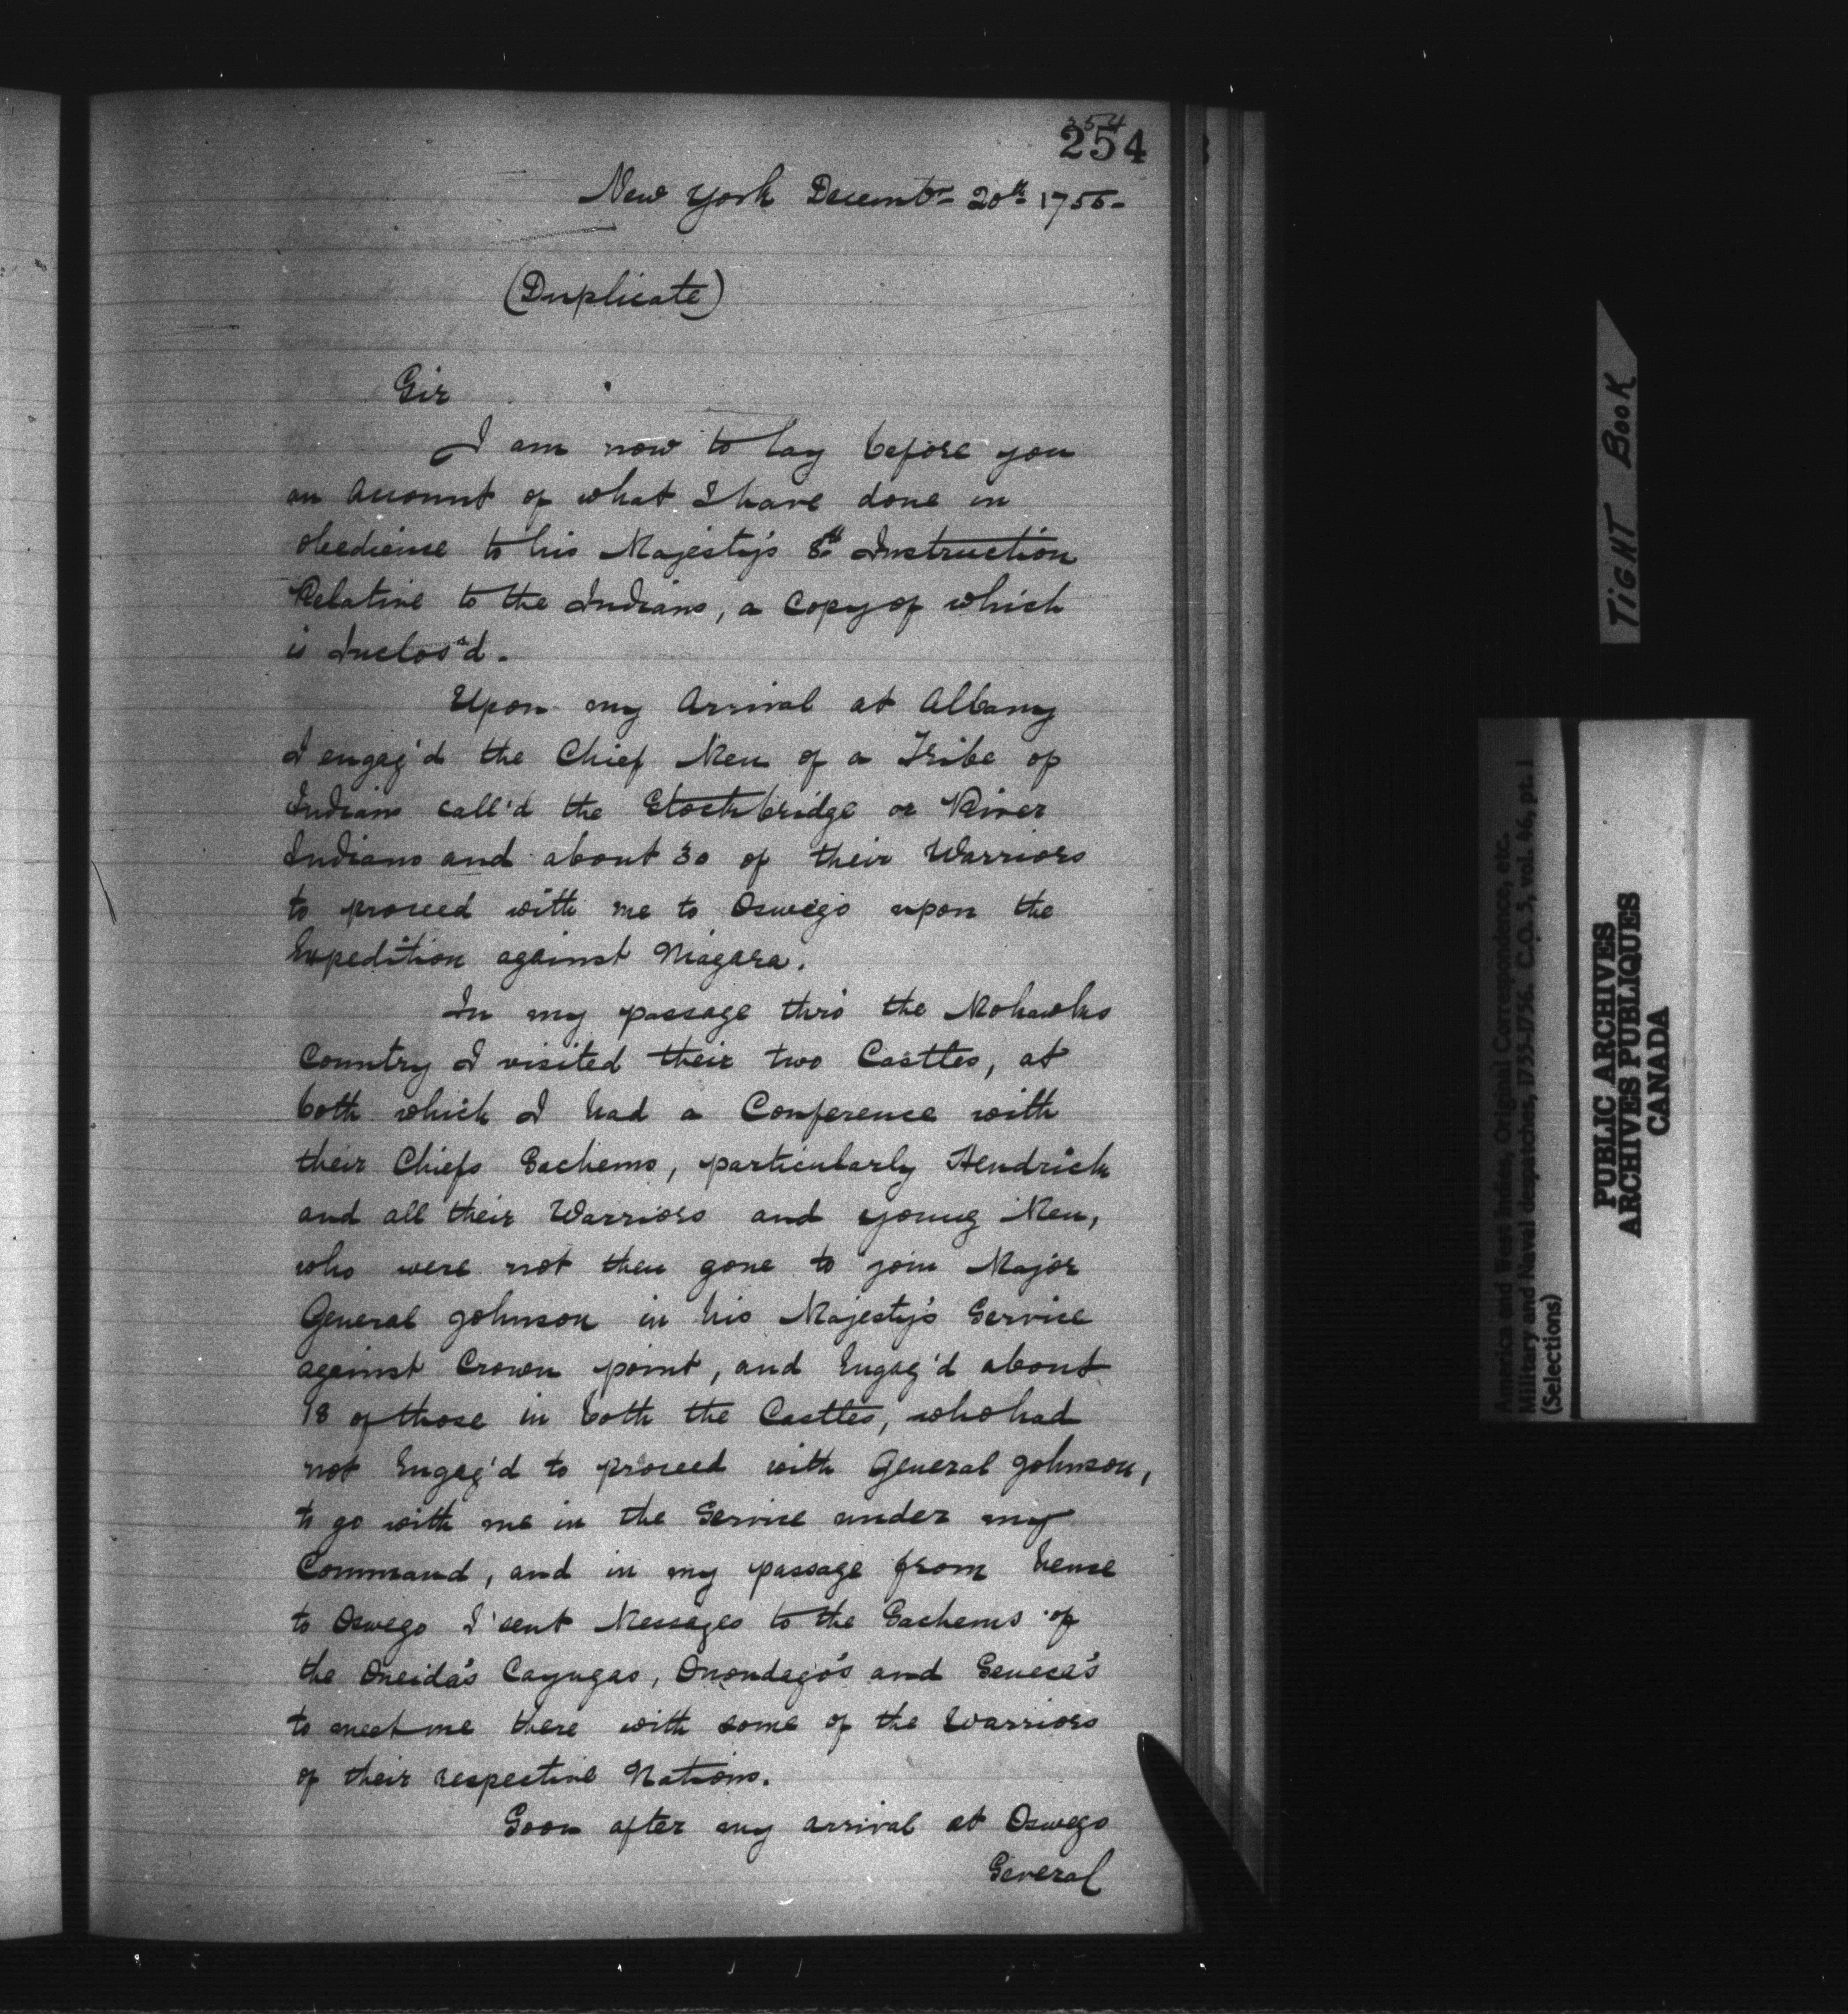 254
254
New York Decembr 20th 1755-
(Duplicate)
Sir
I am now to lay before you
an Account of what I have done in
obedience to his Majesty's 8th Instruction
Relative to the Indians, a Copy of which
is Inclos'd.
Upon my Arrival at Albany
I engag'd the Chief Men of a Tribe of
Indians call'd the Stockbridge or River
Indians and about 30 of their Warriors
to proceed with me to Oswego upon the
Expedition against Niagara.
In my passage thro' the Mohawks
Country I visited their two Castles, at
both which I had a Conference with
their Chiefs Sachems, particularly Hendrick
and all their Warriors and young Men,
who were not then gone to join Major
General Johnson in his Majesty's Service
against Crown point, and Engag'd about
18 of those in both the Castles, who had
not Engag'd to proceed with General Johnson,
to go with me in the Service under my
Command, and in my passage from hence
to Oswego I sent Messages to the Sachems of
the Oneida's Cayugas, Onondago's and Seneca's
to meet me there with some of the Warriors
of their respective Nations.
Soon after my arrival at Oswego
Several
TIGHT BOOK
America and West Indies, Original Correspondence, etc.
Military and Naval despatches, 1755-1756. C.O. 5, vol. 46, pt. 1
(Selections)
PUBLIC ARCHIVES
ARCHIVES PUBLIQUES
CANADA